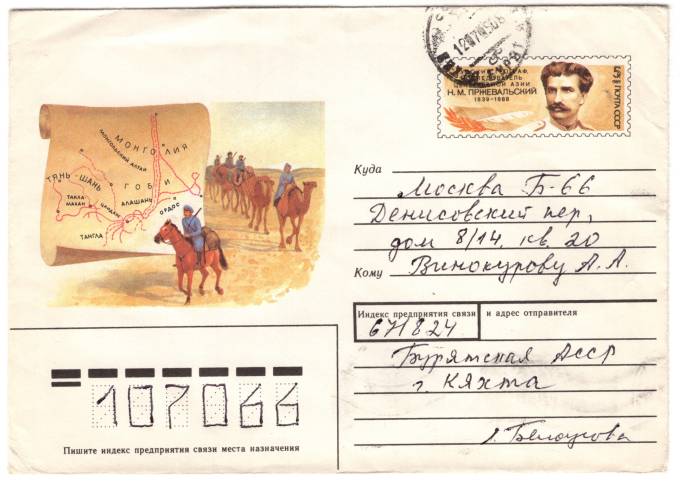 МОНГОЛИЯ
МОНГОЛЬСКИЙ АЛТАЙ
ТЯНЬ-ШАНЬ
ГОБИ
ТАКЛА-
МАКАН
ЦАЙДАМ
АЛАШАНЬ
ОРДОС
ТАНГЛА
ЦЕНТРАЛЬНОЙ АЗИИ
Н.М. ПРЖЕВАЛЬСКИЙ
1839–1888
ПОЧТА СССР
Куда Москва Б-66
Денисовский пер,
дом 8/14, кв. 20
Кому Винокурову А.А.
Индекс предприятия связи и адрес отправителя
671824
Бурятская АССР
г. Кяхта
107066
Пишите индекс предприятия связи места назначения